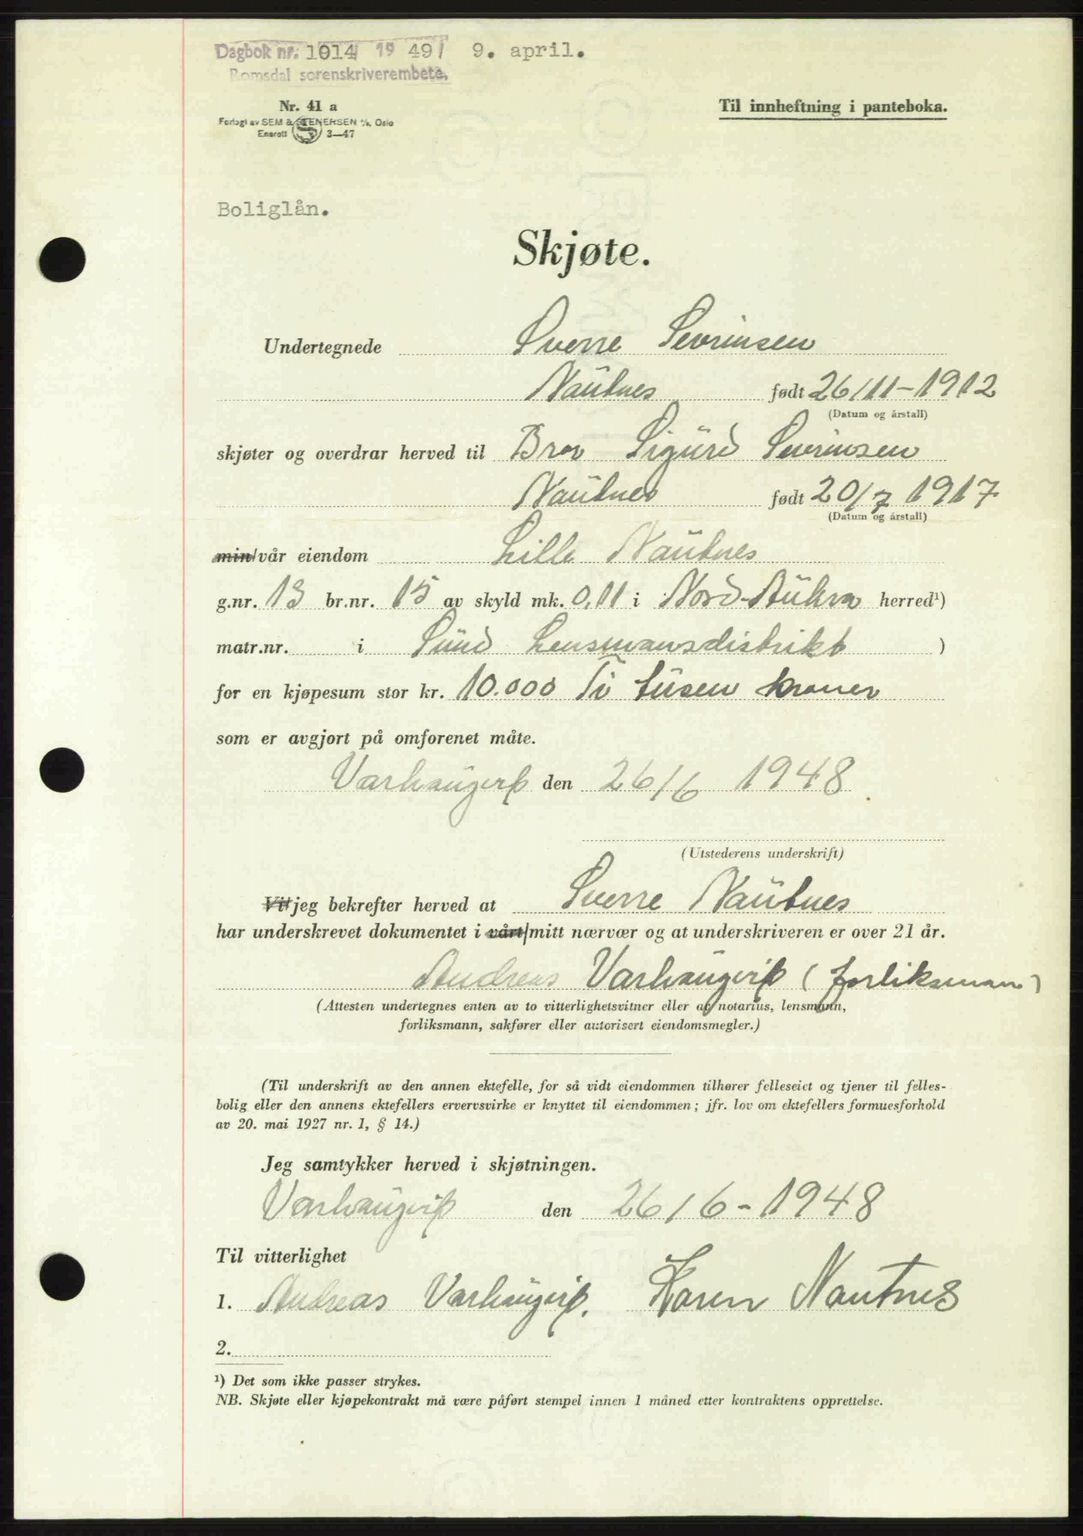 Dagbok nr. 1014 19 49/ 9. april.
Romsdal sorenskriverembete.
Nr. 41 a
Til innheftning i panteboka.
Forlagt av SEM & STENERSEN A/S, Oslo
Enerett 3—47
Boliglån.
Skjøte.
Undertegnede Sverre Sevrinsen
Nautnes født 26/11-1912
(Datum og årstall)
skjøter og overdrar herved til Bror Sigurd Sevrinsen
Nautnes født 20/7 1917
(Datum og årstall)
min/vår eiendom Lille Nautnes
g.nr. 13 br.nr. 15 av skyld mk. 0,11 i Nord-Aukra herred¹)
matr.nr. i Sund Lensmansdistrikt )
for en kjøpesum stor kr. 10.000 Ti tusen kroner
som er avgjort på omforenet måte.
Varhaugvik den 26/6 1948
(Utstederens underskrift)
Vi/jeg bekrefter herved at Sverre Nautnes
har underskrevet dokumentet i vårt/mitt nærvær og at underskriveren er over 21 år.
Andreas Varhaugvik (forliksman)
(Attesten undertegnes enten av to vitterlighetsvitner eller av notarius, lensmann,
forliksmann, sakfører eller autorisert eiendomsmegler.)
(Til underskrift av den annen ektefelle, for så vidt eiendommen tilhører felleseiet og tjener til felles-
bolig eller den annens ektefellers ervervsvirke er knyttet til eiendommen; jfr. lov om ektefellers formuesforhold
av 20. mai 1927 nr. 1, § 14.)
Jeg samtykker herved i skjøtningen.
Varhaugvik den 26/6-1948
Til vitterlighet
1. Andreas Varhaugvik. Karen Nautnes
2.
¹) Det som ikke passer strykes.
NB. Skjøte eller kjøpekontrakt må være påført stempel innen 1 måned etter kontraktens opprettelse.